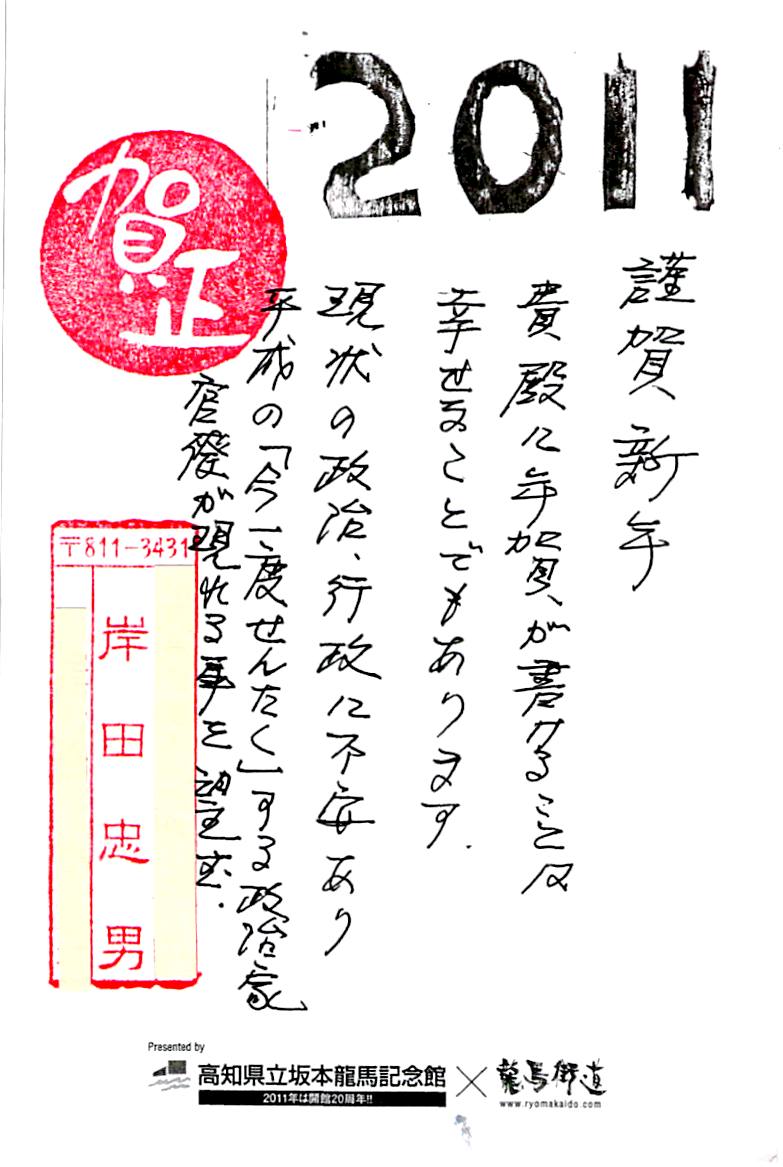 2011
賀正
謹賀新年
貴殿に年賀が書ける
幸せなことでもあります.
現状の政治、行政に不安あり
平成の「今一度せんたく」する政治家
官僚が現れる事を望む.
〒811-3431
岸田忠男
Presented by
高知県立坂本龍馬記念館
2011年は開館20周年!!
×
龍馬街道
www.ryomakaido.com